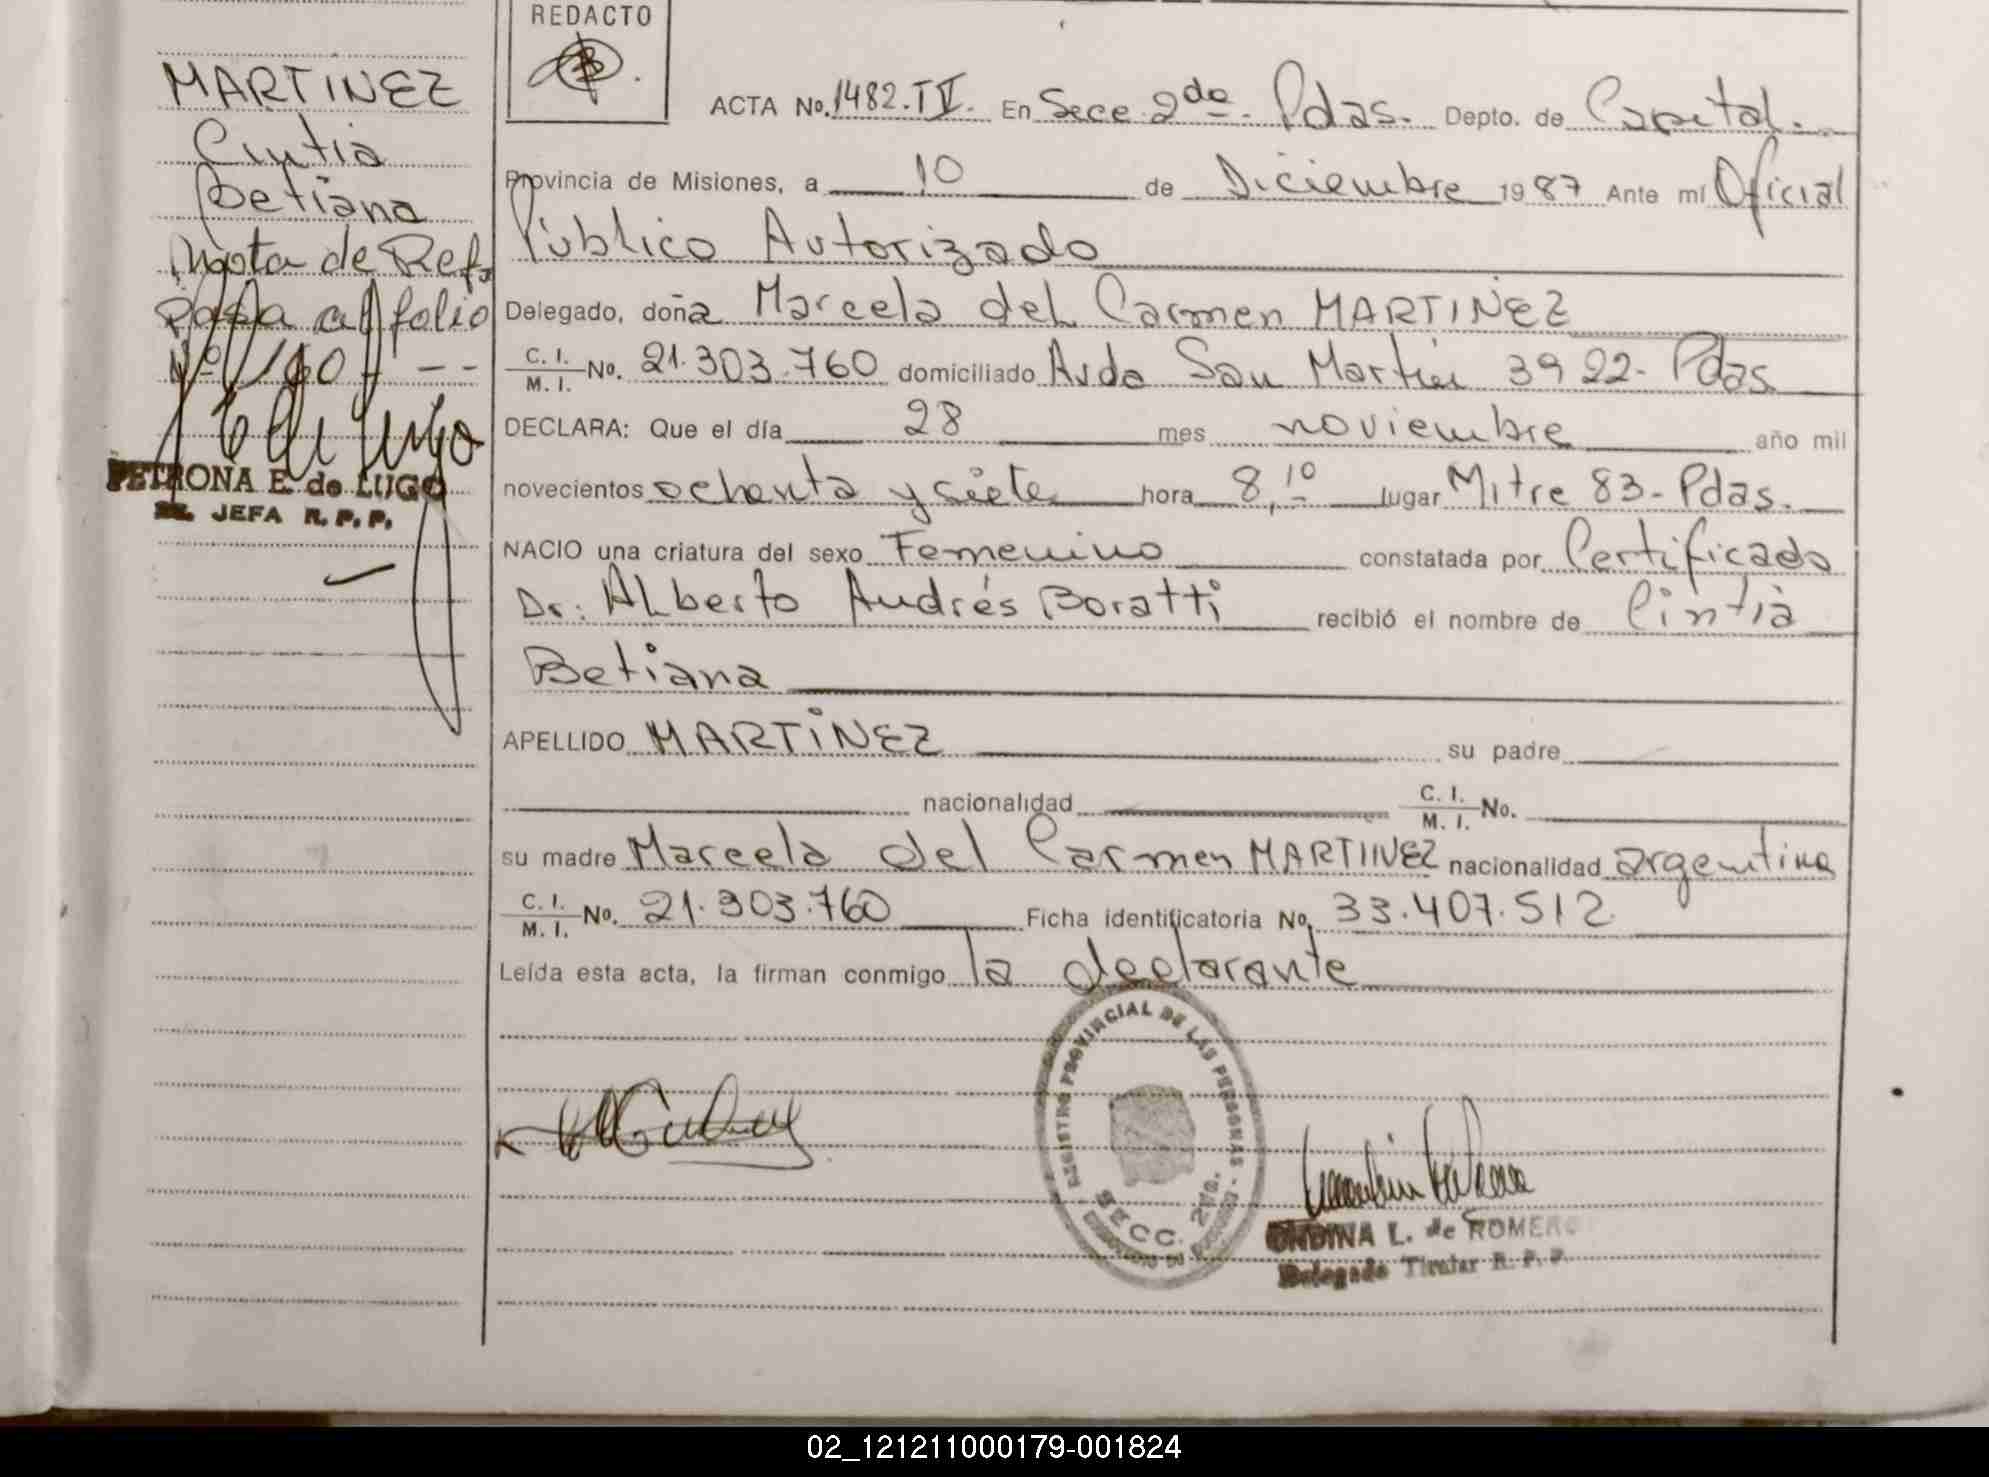 REDACTO
MARTINEZ
Cintia
Betiana
Nota de Ref.
Pasa al folio
Nº 160 - - -
PETRONA E. de LUGO
JEFA R. P. P.
ACTA No. 1482.T V. En Secc 2da. Pdas. Depto. de Capital.
Provincia de Misiones, a 10 de Diciembre 1987 Ante mí Oficial
Público Autorizado
Delegado, doña Marcela del Carmen MARTINEZ
C. I. / M. I. No. 21.303.760 domiciliado Avda San Martín 3922- Pdas
DECLARA: Que el día 28 mes noviembre año mil
novecientos ochenta y siete hora 8,10 lugar Mitre 83- Pdas.
NACIO una criatura del sexo Femenino constatada por Certificado
Dr: Alberto Andrés Boratti recibió el nombre de Cintia
Betiana
APELLIDO MARTINEZ su padre
nacionalidad C. I. / M. I. No.
su madre Marcela del Carmen MARTIINEZ nacionalidad argentina
C. I. / M. I. No. 21.303.760 Ficha identificatoria No. 33.407.512
Leída esta acta, la firman conmigo la declarante
REGISTRO PROVINCIAL DE LAS PERSONAS
SECC. 2da.
ONDINA L. de ROMERO
Delegado Titular R. P. P.
02_121211000179-001824